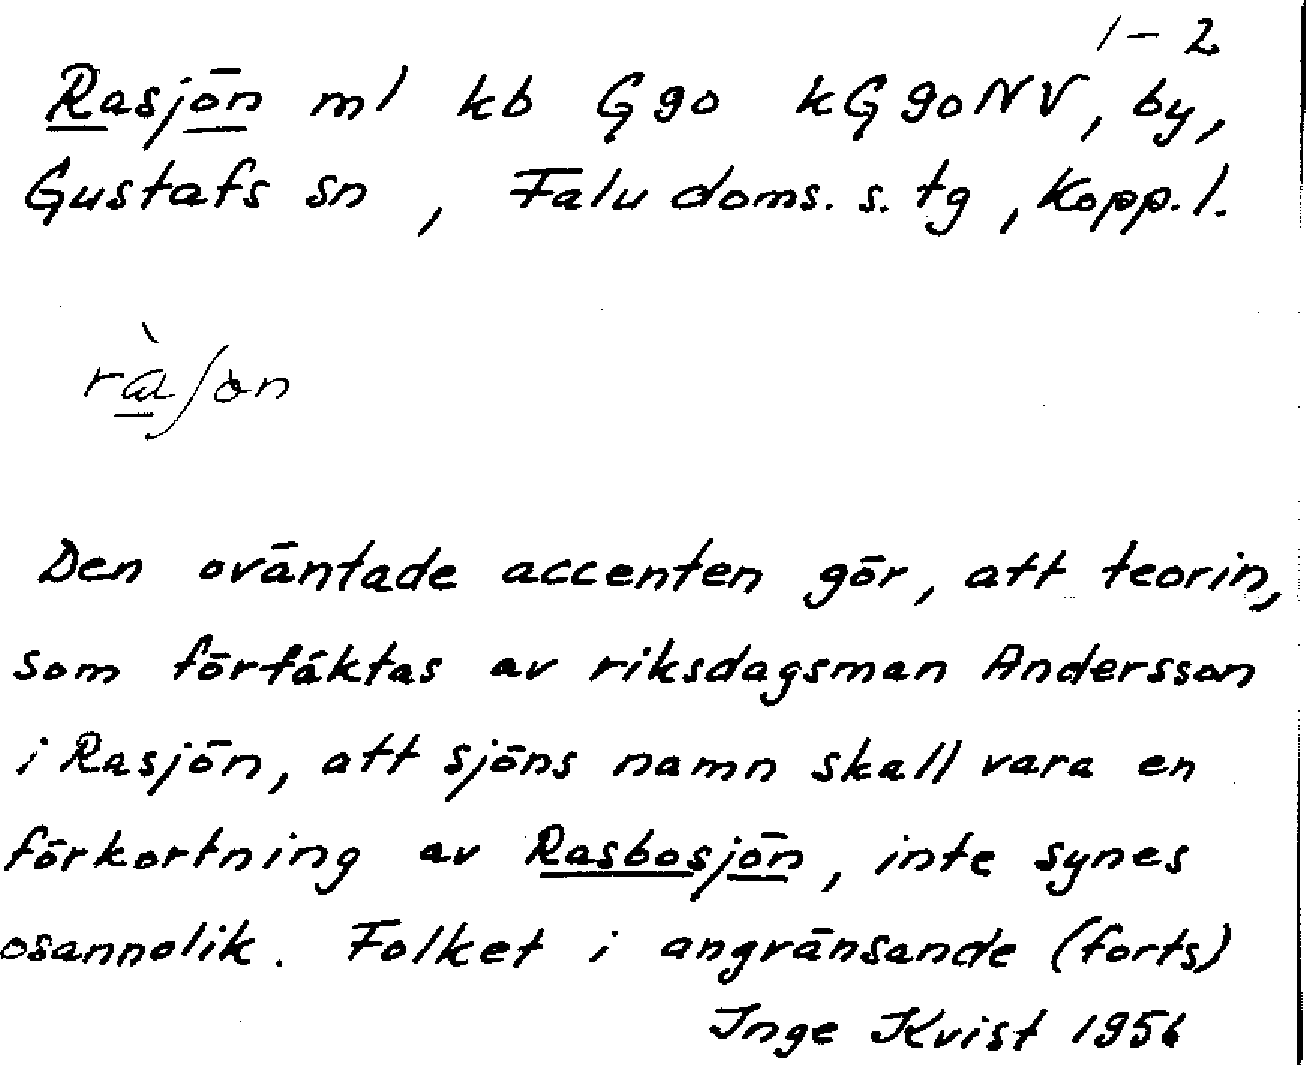 1-2
Rasjön ml kb G 90 kG 90 NV, by,
Gustafs sn, Falu doms. s. tg, Kopp. l.
ràʃon
Den oväntade accenten gör, att teorin,
som förfäktas av riksdagsman Andersson
i Rasjön, att sjöns namn skall vara en
förkortning av Rasbosjön, inte synes
osannolik. Folket i angränsande (forts)
Inge Kvist 1956